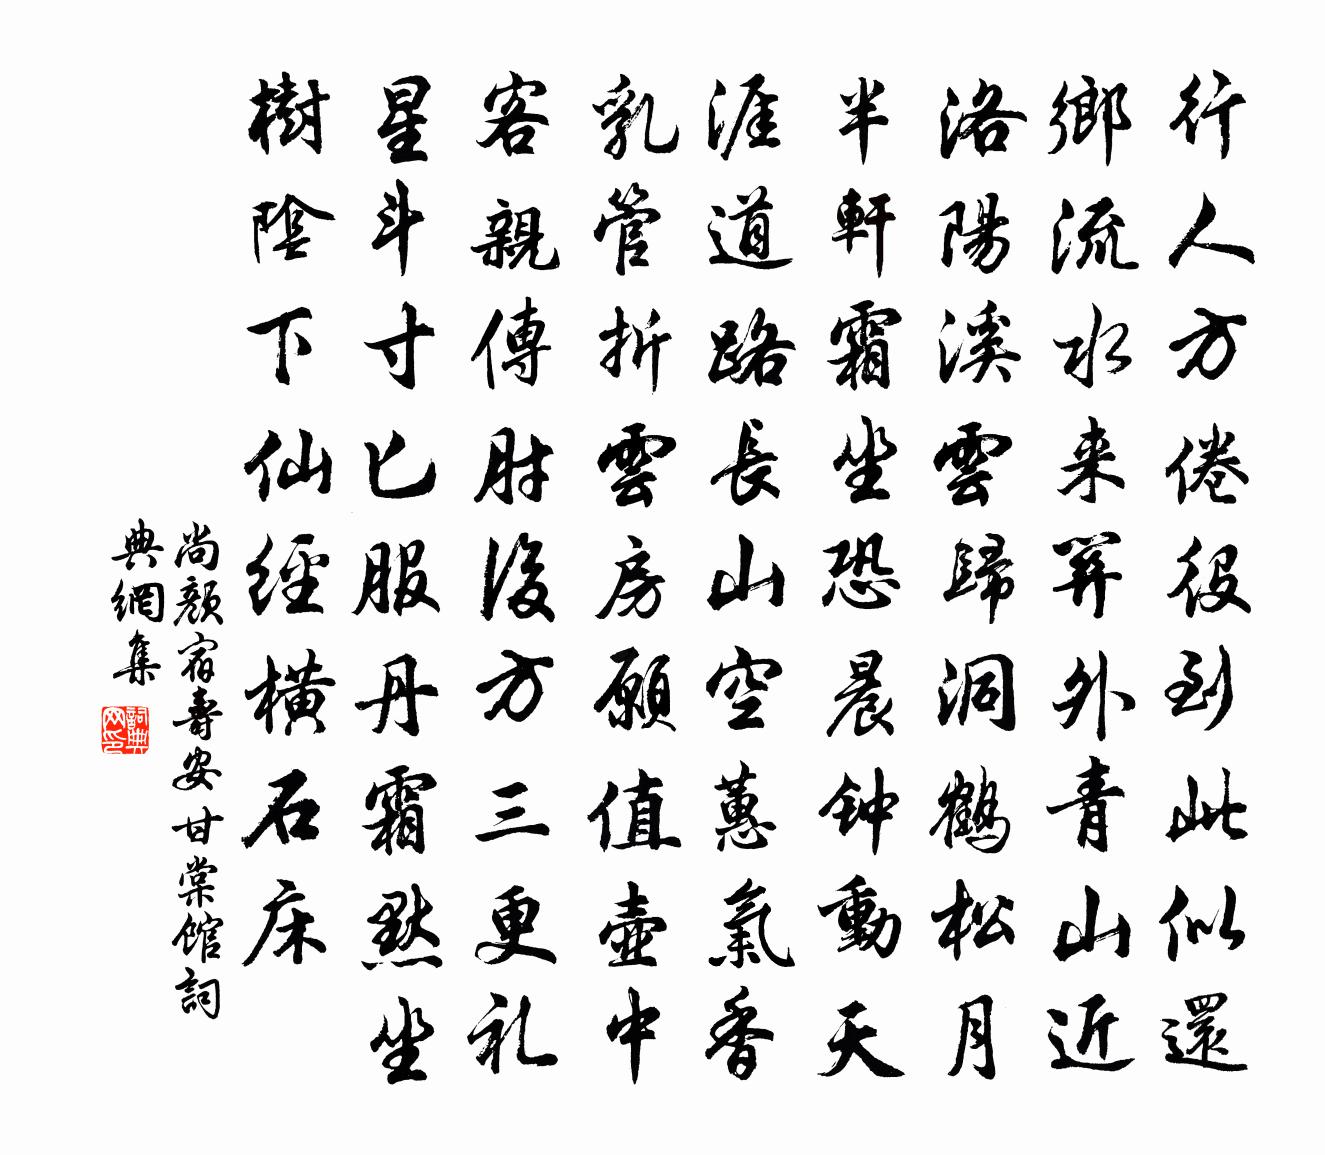 行人方倦役到此似還
鄉流水来關外青山近
洛陽溪雲歸洞鶴松月
半軒霜坐恐晨钟動天
涯道路長山空蕙氣香
乳管折雲房願值壺中
客親傳肘後方三更礼
星斗寸匕服丹霜默坐
樹陰下仙經橫石床
尚顏宿壽安甘棠館詞
典網集
詞典网印